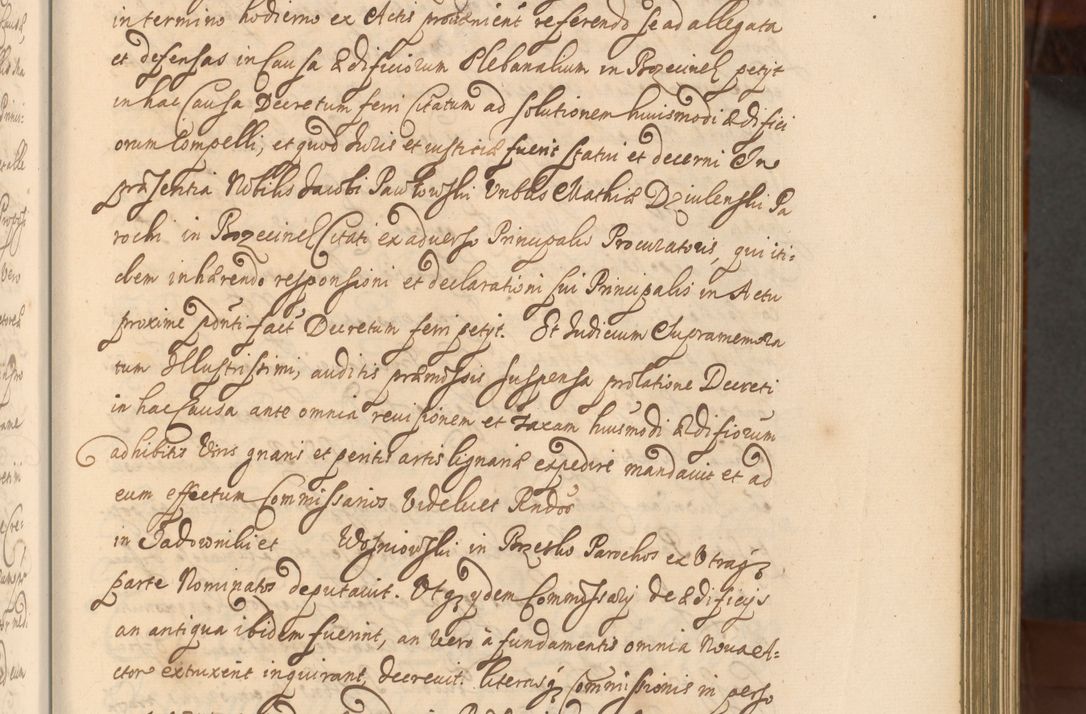 in termino hodierno ex Actis provenient referendo se ad allegata
et defensas in Causa Ædificiorum Plebanalium in Bozecinek petyt
in hac Causa Decretum ferri Citatum ad solutionem huiusmodi Ædifici
orum Compelli, et quod Iuris et iustitiæ fuerit statui et decerni In
præsentia Nobilis Jacobi Pawłowski Vnblis Mathiæ Dziulenski Pa
rochi in Bozecinek Citati ex adverso Principalis Procuratoris, qui iti-
dem inhærendo responsioni et declarationi sui Principalis in Actu
proxime pdnti fact Decretum ferri petyt. Et Iudicium Supramemora
tum Illustrissimi, auditis præmissis suspensa prolatione Decreti
in hac Causa ante omnia revisionem et Taxam huismodi Ædificiorum
adhibitis Viris gnaris et peritis artis lignariæ expediri mandavit et ad
eum effectum Commissarios Videlicet Rndos
in Jadowniki et Wosniowski in Brzesko Parochos ex Utraq
parte Nominatos deputavit. Utq ydem Commissarij de Ædificijs
an antiqua ibidem fuerint, an vero à fundamentis omnia Nova A-
ctor extruxerit inquirant, decrevit literasq Commissionis in perso